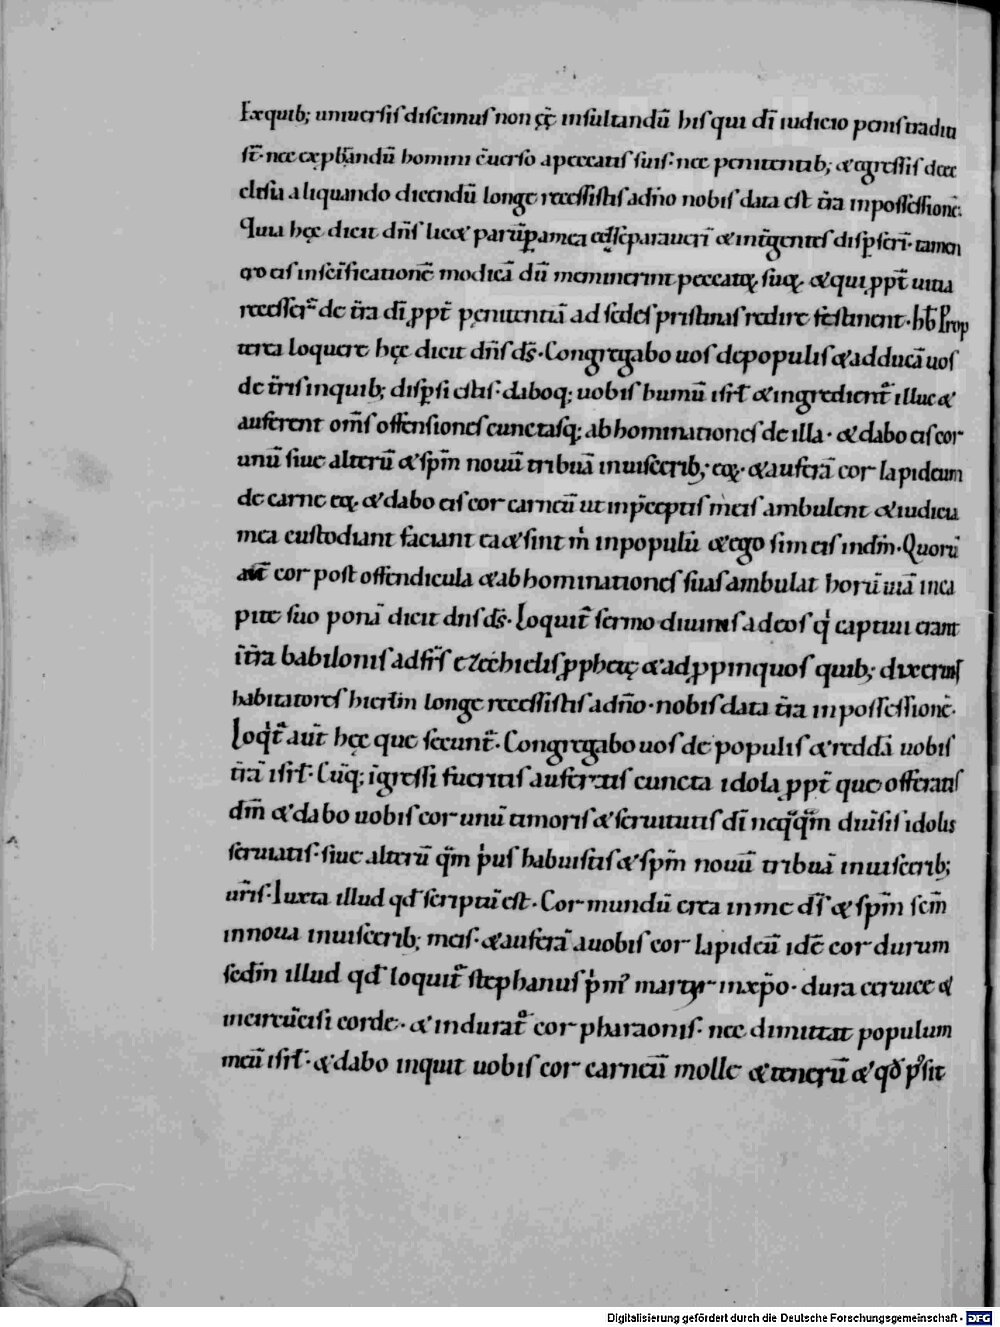 Exquib; uniuersis discimus non ęę insultandū his qui dī iudicio penis traditi
st̄· nec exp̱bandū homini c̄uerso a peccatis suis· nec penitentib; & egressis de ec
clesia aliquando dicendū longe recessistis adn̄o nobis data est t̄ra in possessionē·
Quia hęc dicit dn̄s lic& par separauerī & int̄ gentes disp̱serī· tamen
ego eis inscīficationē modicā dū meminerint peccatoꝝ suoꝝ & qui ꝓpt̄ uitia
recesser̄ de t̄ra dī ꝓpt̄ penitentiā ad sedes pristinas redire festinent· Prop
terea loquere hęc dicit dn̄s ds̄· Congregabo uos de populis & adducā uos
de t̄ris inquib; disp̱si estis· daboq; uobis humū isrł & ingredient̄ illuc &
auferent om̄s offensiones cunctasq; abhominationes de illa· & dabo eis cor
unū siue alterū & sp̄m nouū tribuā inuiscerib; eoꝝ· & auferā cor lapideum
de carne eoꝝ & dabo eis cor carneū ut inp̄ceptis meis ambulent & iudicia
mea custodiant faciant ea & sint m̄ inpopulū & ego sim eis indm̄· Quorū
aut̄ cor post offendicula & abhominationes suas ambulat horū uiā inca
pite suo ponā dicit dn̄s ds̄· Loquit̄ sermo diuinus ad eos q̇ captiui erant
in t̄ra babilonis ad fr̄s ezechielis ꝓphetę & ad ꝓpinquos quib; dixerunt
habitatores hierłm longe recessistis adn̄o· nobis data t̄ra in possessionē·
Loq̇t̄ aut̄ hęc que secunt̄· Congregabo uos de populis & reddā uobis
t̄rā isrł· Cūq; īgressi fueritis auferetis cuncta idola ꝓpt̄ que offeratis
dm̄ & dabo uobis cor unū timoris & seruitutis dī neq̄q̄m diūsis idolis
seruiatis· siue alterū q̄m p̍us habuistis & sp̄m nouū tribuā inuiscerib;
ur̄is· Iuxta illud qđ scriptū est· Cor mundū crea in me dś & sp̄m rc̄m
innoua inuiscerib; meis· & auferā auobis cor lapideū idē cor durum
sedm̄ illud qđ loquit̄ stephanus p̍m᷒ martyr inxp̄o· dura ceruice &
incircūcisi corde· & indurat̄ cor pharaonis· nec dimittat populum
meū isrł· & dabo inquit uobis cor carneū molle & tenerū & qđ p̊sit
Digitalisierung gefördert durch die Deutsche Forschungsgemeinschaft - DFG